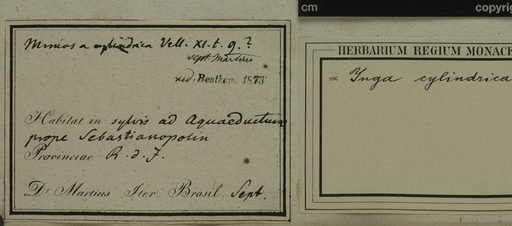 cm
copyrig
Mimosa cylindrica Vell. XI. t. 9.?
sept Martius
vid. Bentham. 1873
Habitat in sylvis ad Aquaeductum
prope Sebastianopolin
Provinciae R. d. J.
Dr Martius Iter Brasil. Sept.
HERBARIUM REGIUM MONACE
= Inga cylindrica